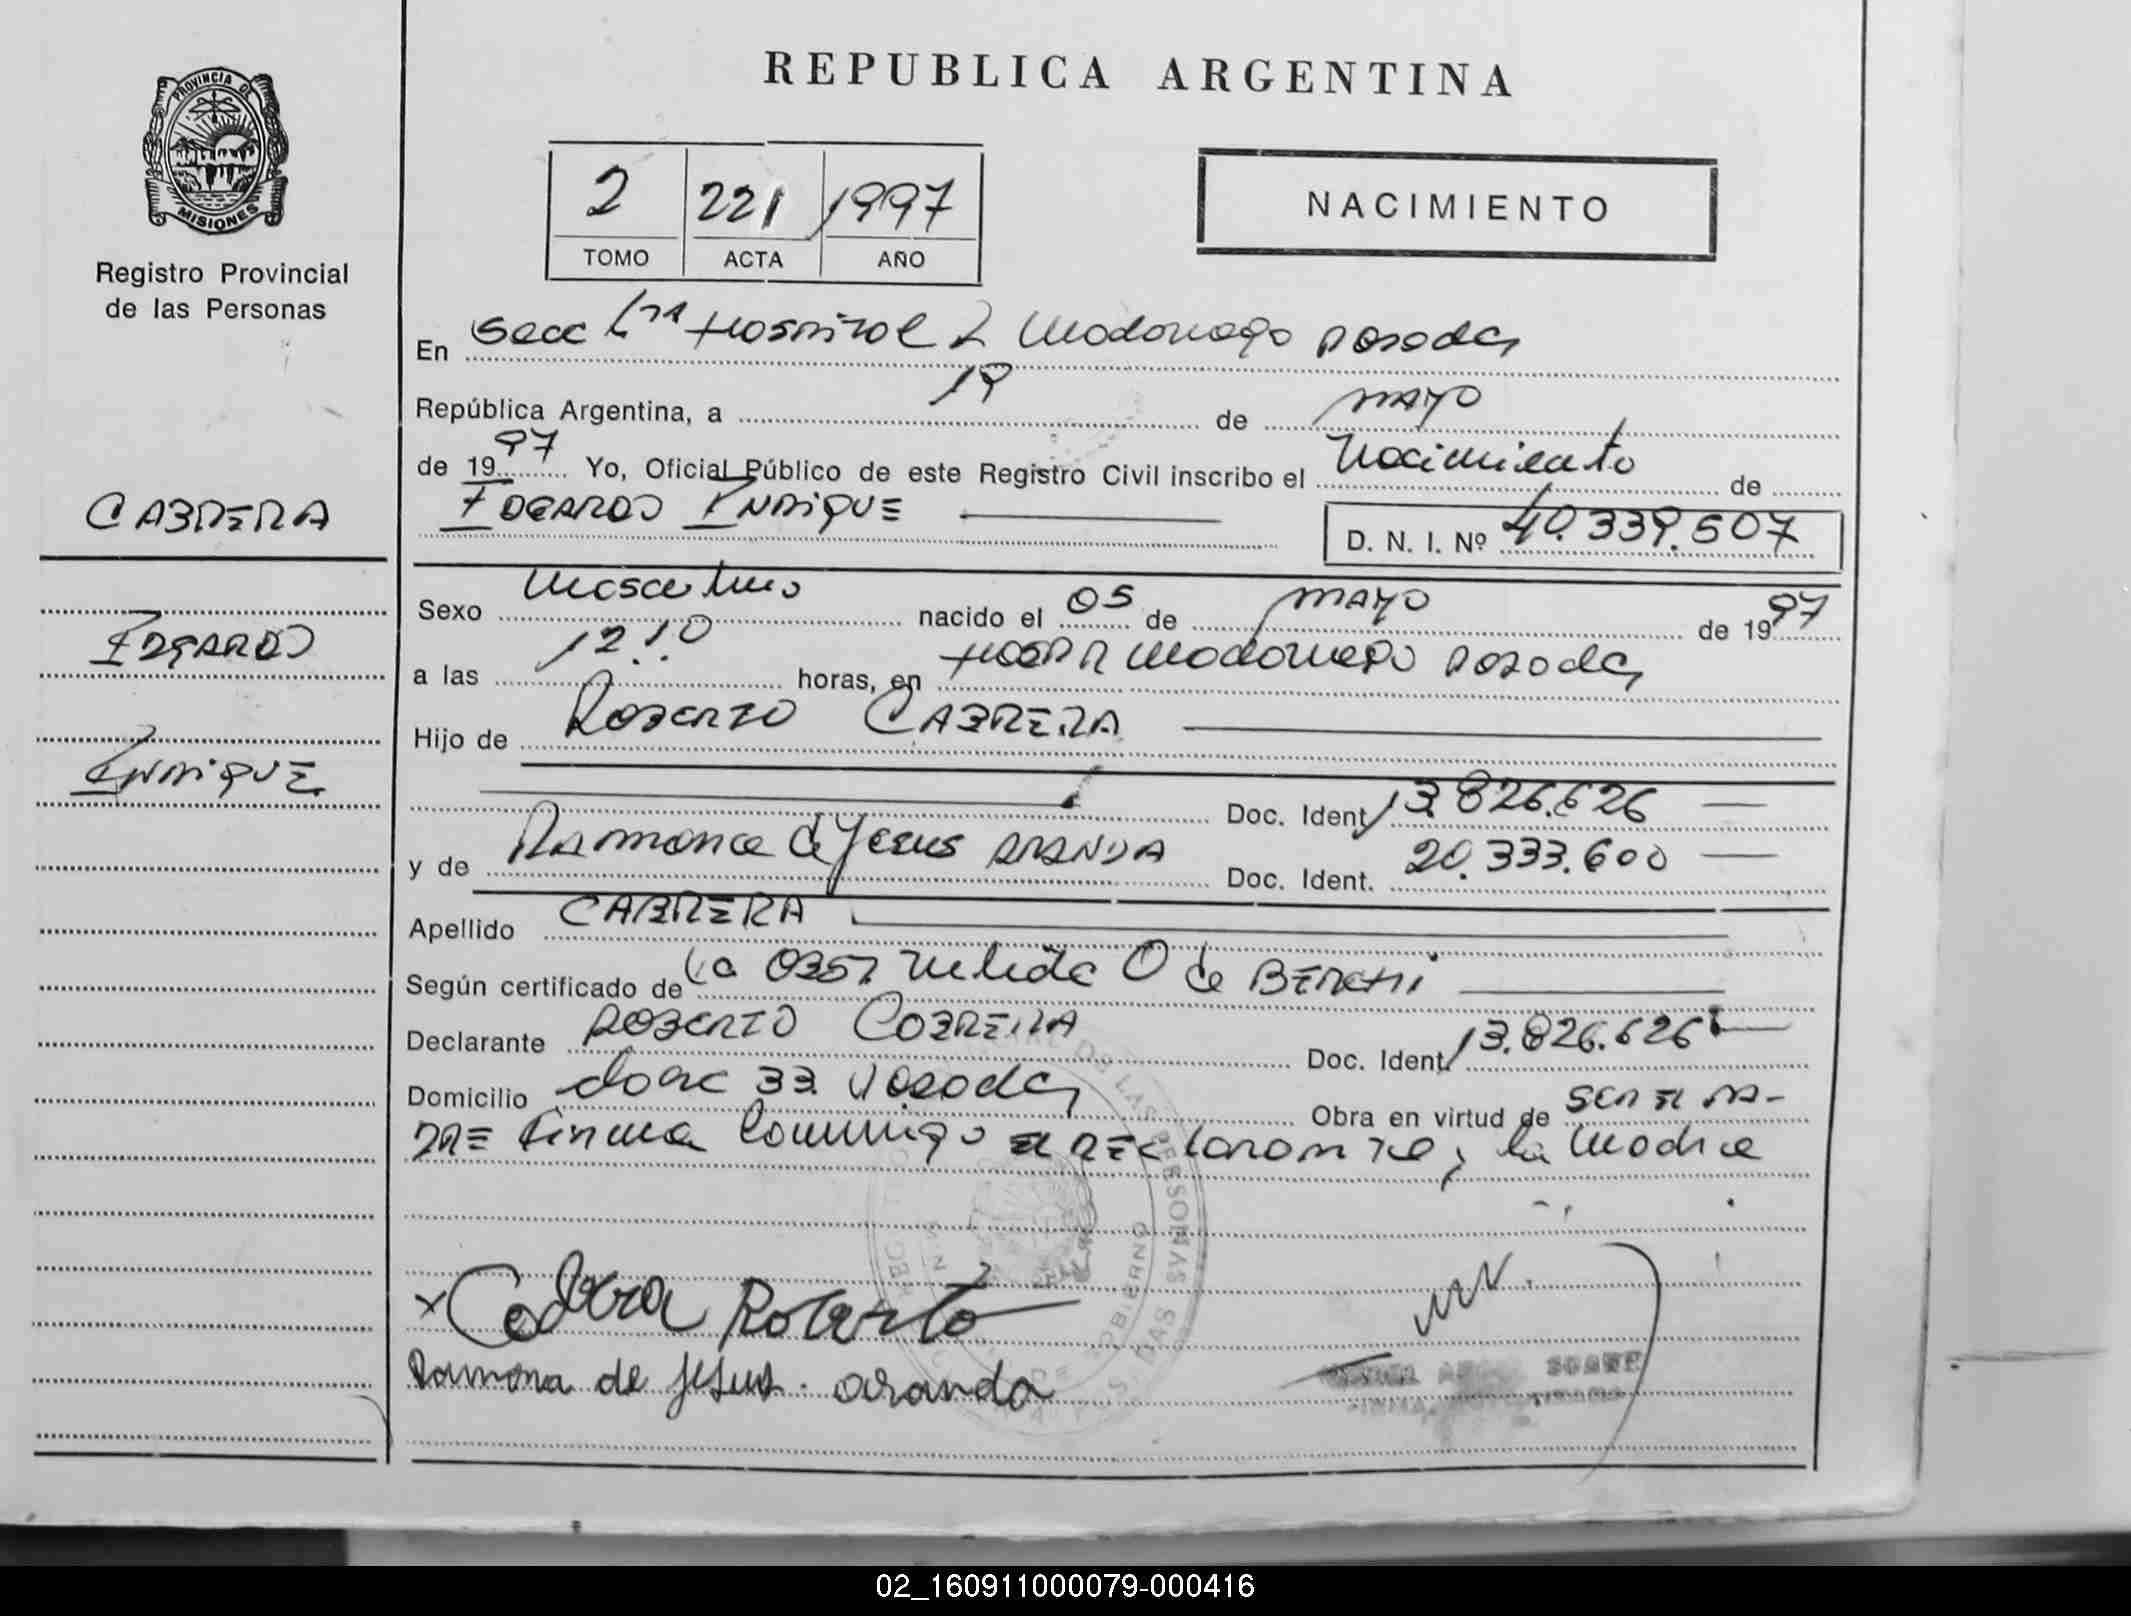 REPUBLICA ARGENTINA
PROVINCIA DE
MISIONES
Registro Provincial
de las Personas
2 221 1997
TOMO ACTA AÑO
NACIMIENTO
En Secc Hospital R Madariaga Posadas
República Argentina, a 19 de mayo
de 1997 Yo, Oficial Público de este Registro Civil inscribo el Nacimiento de
EDGARDO ENRIQUE D. N. I. Nº 40.339.507
CABRERA
EDGARDO
ENRIQUE
Sexo Masculino nacido el 05 de mayo de 1997
a las 12.10 horas, en Hosp R Madariaga Posadas
Hijo de Roberto CABRERA
Doc. Ident. 13.826.626
y de Ramona de Jesus ARANDA Doc. Ident. 20.333.600
Apellido CABRERA
Según certificado de La Obst Nelida O de
Declarante ROBERTO CABRERA Doc. Ident. 13.826.626
Domicilio 33 Posadas Obra en virtud de SER EL PA-
DRE firma conmigo EL DECLARANTE y la Madre
x Cabrera Roberto
Ramona de Jesus aranda
02_160911000079-000416